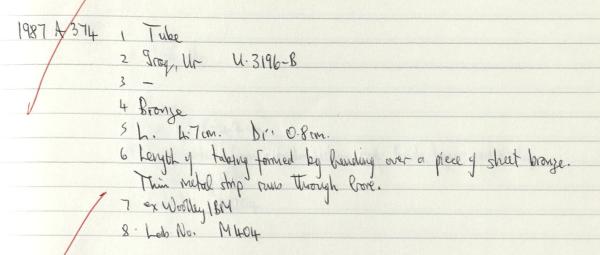 1987 A 374 1 Tube
2 Iraq, Ur U.3196-B
3 -
4 Bronze
5 L. 4.7cm. Dr. 0.8cm.
6 Length of tubing formed by bending over a piece of sheet bronze.
Thin metal strip runs through bore.
7 ex Woolley/BM
8. Lab No. M404